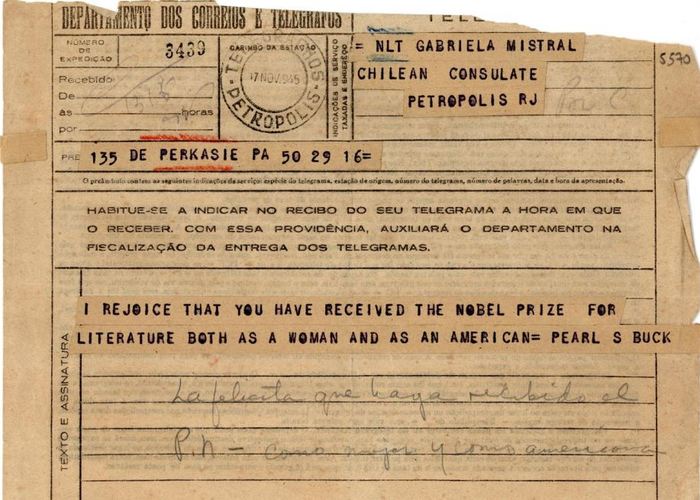 DEPARTAMENTO DOS CORREIOS E TELEGRAFOS
NÚMERO DE EXPEDIÇÃO
3439
CARIMBO DA ESTAÇÃO
TELEGRAPHOS
17 NOV 945
PETROPOLIS
INDICAÇÕES DE SERVIÇO TAXADAS E ENDEREÇO
= NLT GABRIELA MISTRAL
CHILEAN CONSULATE
PETROPOLIS RJ
5570
Recebido
De
às horas
por
PRE 135 DE PERKASIE PA 50 29 16=
O preâmbulo contém as seguintes indicações de serviço: espécie do telegrama, estação de origem, número do telegrama, número de palavras, data e hora da apresentação.
HABITUE-SE A INDICAR NO RECIBO DO SEU TELEGRAMA A HORA EM QUE
O RECEBER. COM ESSA PROVIDÊNCIA, AUXILIARÁ O DEPARTAMENTO NA
FISCALIZAÇÃO DA ENTREGA DOS TELEGRAMAS.
TEXTO E ASSINATURA
I REJOICE THAT YOU HAVE RECEIVED THE NOBEL PRIZE FOR
LITERATURE BOTH AS A WOMAN AND AS AN AMERICAN= PEARL S BUCK
La felicita que haya recibido el
P.N — como mujer y como americana